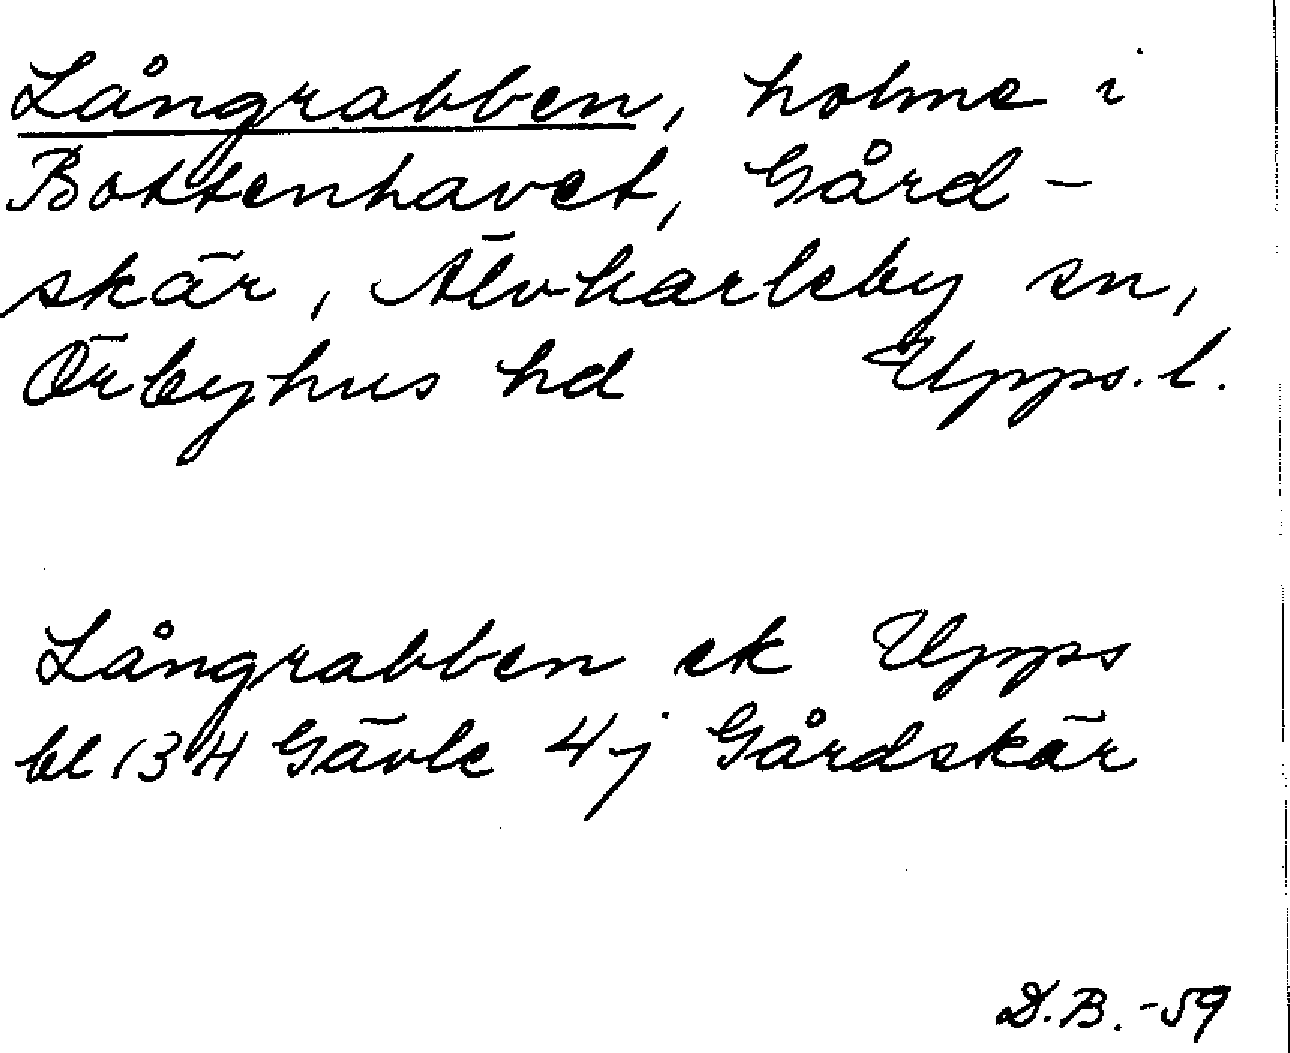 Långrabben, holme i
Bottenhavet, Gård-
skär, Älvkarleby sn,
Örbyhus hd Upps. l.
Långrabben ek Upps
bl 134 Gävle 4j Gårdskär
D.B.-59